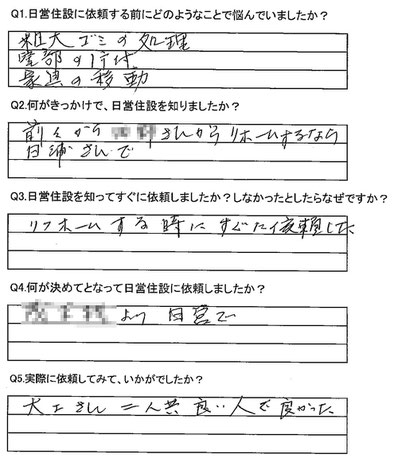 Q1.日営住設に依頼する前にどのようなことで悩んでいましたか？
粗大ゴミの処理
部の片付
家具の移動
Q2.何がきっかけで、日営住設を知りましたか？
前々から さんから リホームするなら
日浦さんで
Q3.日営住設を知ってすぐに依頼しましたか？しなかったとしたらなぜですか？
リフホームする時にすぐに依頼した
Q4.何が決めてとなって日営住設に依頼しましたか？
より 日営で
Q5.実際に依頼してみて、いかがでしたか？
大工さん 二人共 良い人で良かった